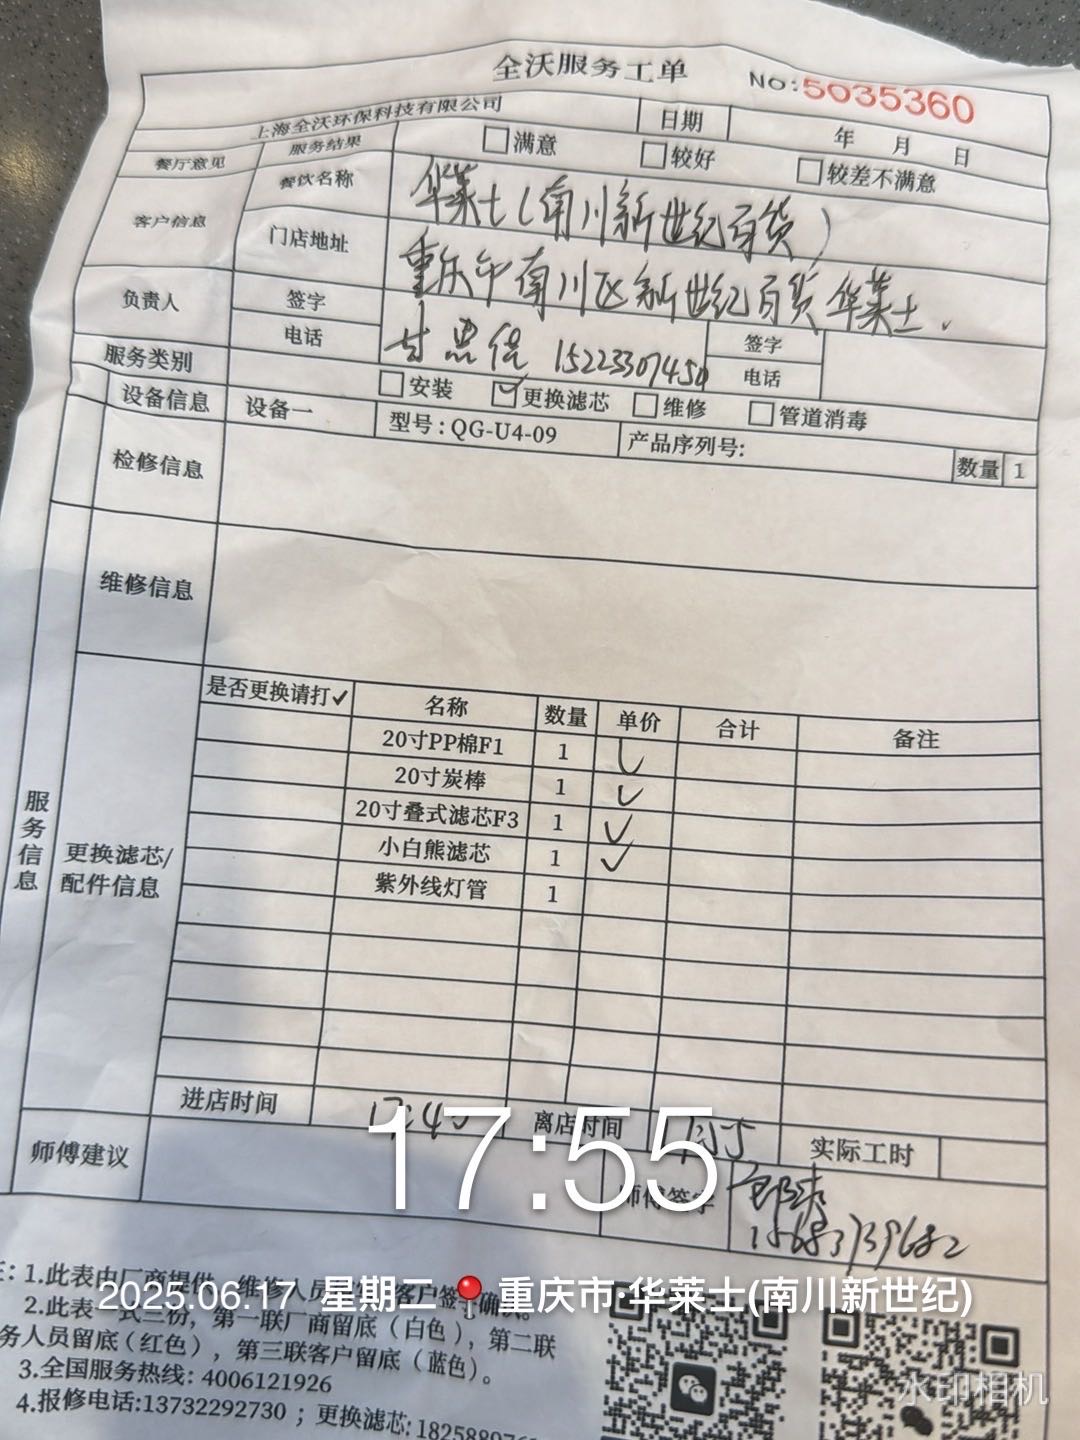 全沃服务工单
No:5035360
上海全沃环保科技有限公司 日期 年 月 日
餐厅意见 服务结果 满意 较好 较差不满意
客户信息 餐饮名称 华莱士(南川新世纪百货)
门店地址 重庆市南川区新世纪百货华莱士.
负责人 签字 签字
电话 15223307450 电话
服务类别 安装 ✓更换滤芯 维修 管道消毒
设备信息 设备一 型号:QG-U4-09 产品序列号: 数量 1
检修信息
维修信息
服务信息
更换滤芯/
配件信息
是否更换请打✓ 名称 数量 单价 合计 备注
20寸PP棉F1 1 ✓
20寸炭棒 1 ✓
20寸叠式滤芯F3 1 ✓
小白熊滤芯 1 ✓
紫外线灯管 1
进店时间 17:40 离店时间 实际工时
17:55
师傅建议 师傅签字
15683739682
注:1.此表由厂商提供,维修人员 客户签字确认。
2025.06.17 星期二 重庆市·华莱士(南川新世纪)
2.此表一式三份,第一联厂商留底(白色),第二联
务人员留底(红色),第三联客户留底(蓝色)。
3.全国服务热线:4006121926
4.报修电话:13732292730;更换滤芯:182588976
水印相机